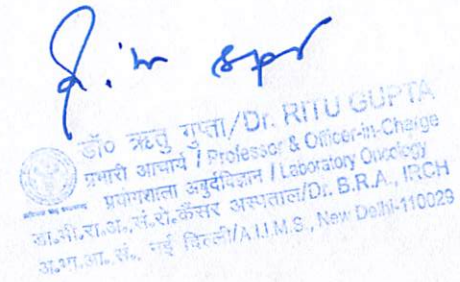 डॉ० ऋतु गुप्ता/Dr. RITU GUPTA
प्रभारी आचार्य / Professor & Officer-in-Charge
प्रयोगशाला अर्बुदविज्ञान / Laboratory Oncology
डा.भी.रा.अ.,सं.रो.कैंसर अस्पताल/Dr. B.R.A., IRCH
अ.भा.आ.सं., नई दिल्ली/A.I.I.M.S., New Delhi-110029